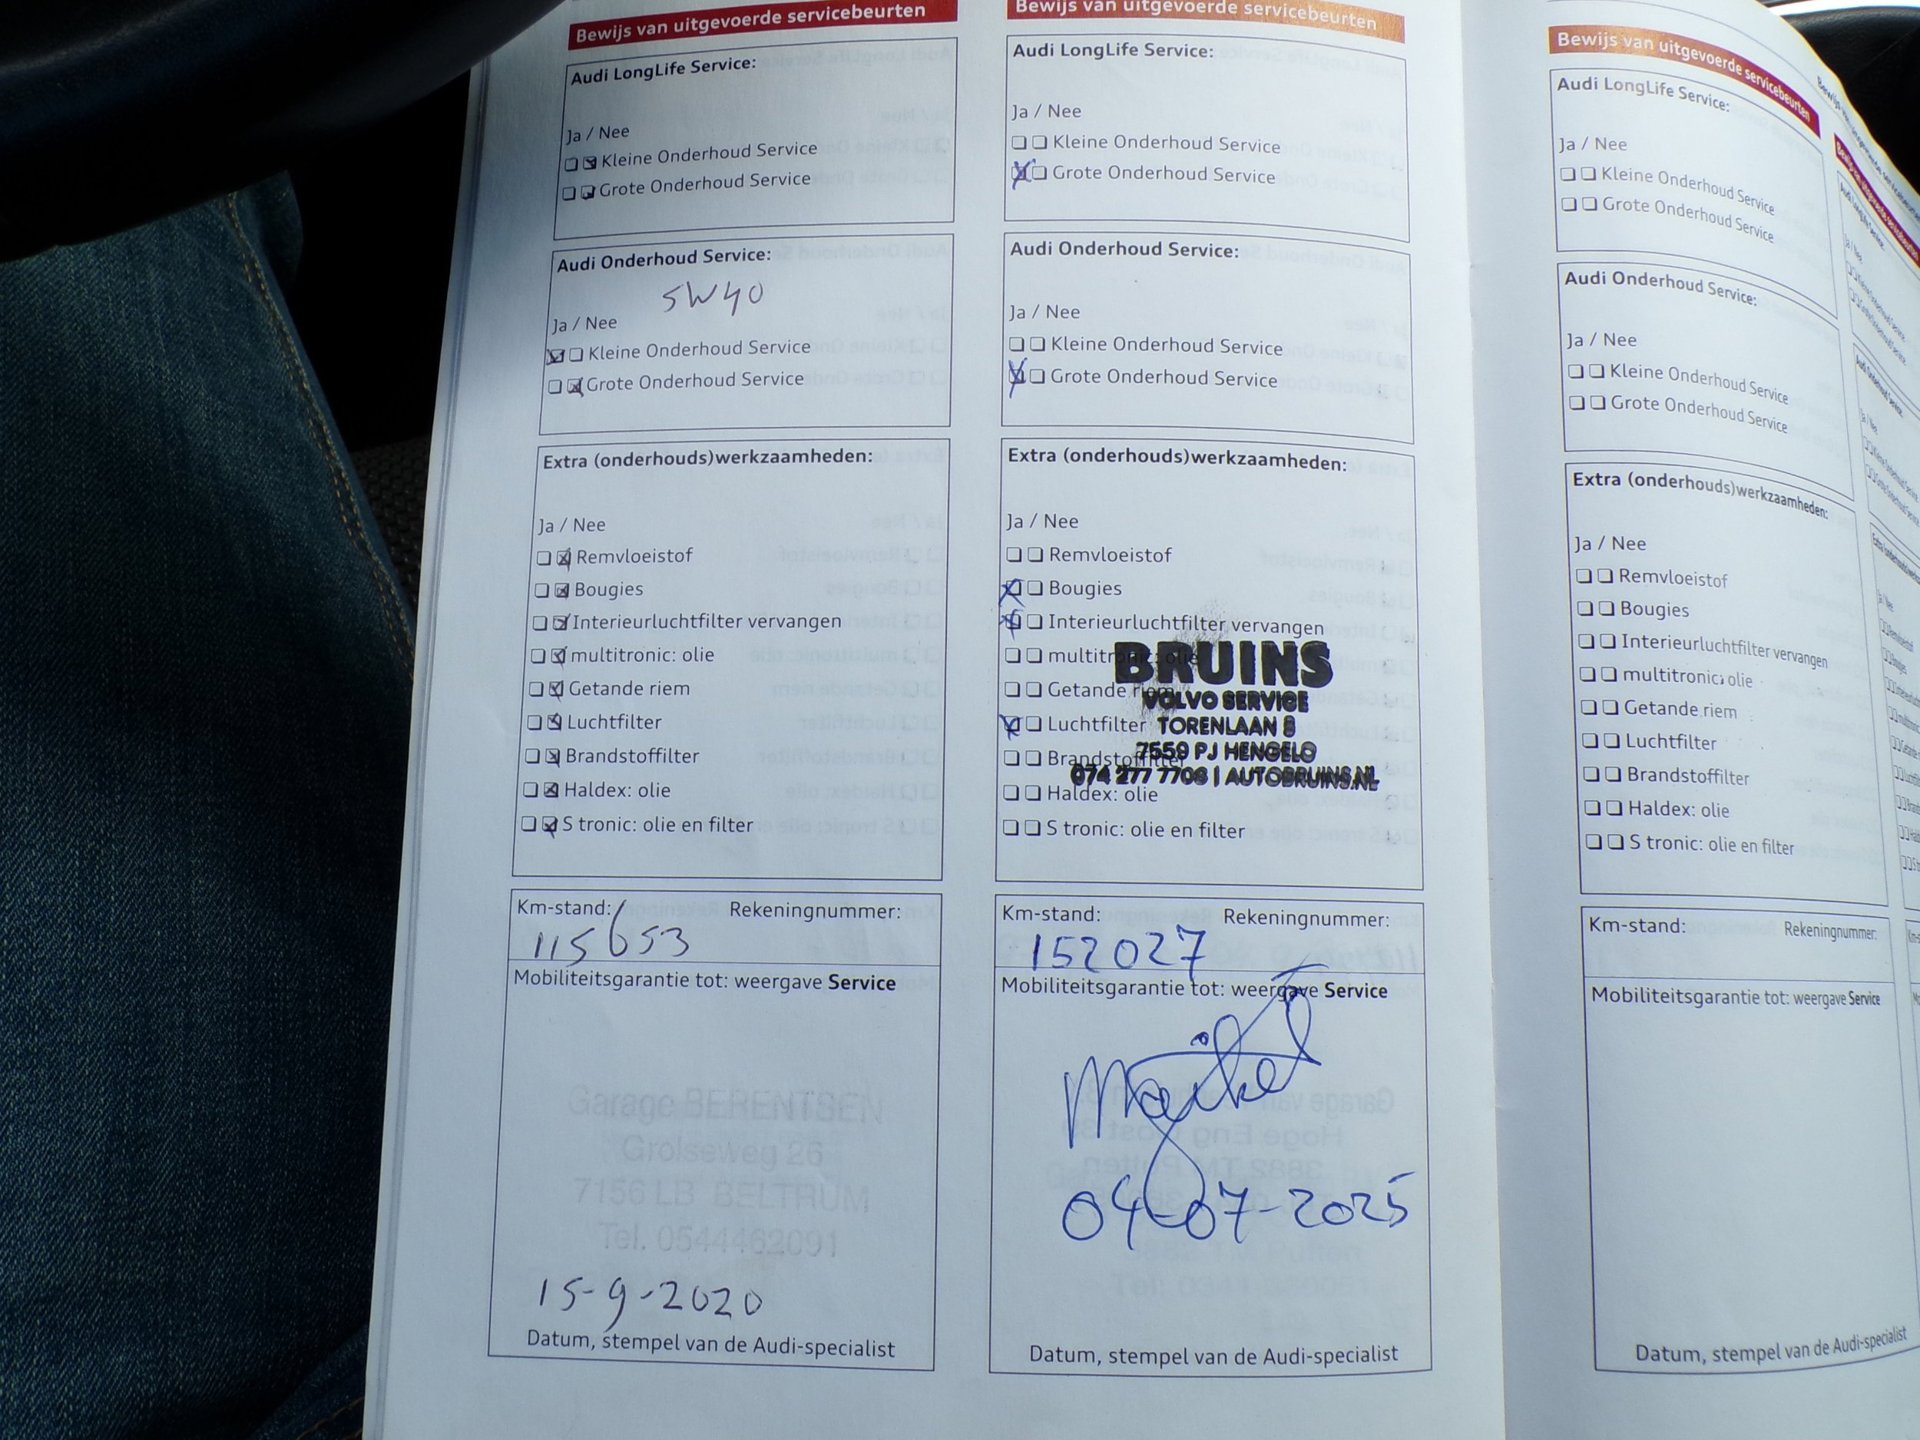 Bewijs van uitgevoerde servicebeurten
Audi LongLife Service:
Ja / Nee
Kleine Onderhoud Service
Grote Onderhoud Service
Audi Onderhoud Service:
5W40
Ja / Nee
Kleine Onderhoud Service
Grote Onderhoud Service
Extra (onderhouds)werkzaamheden:
Ja / Nee
Remvloeistof
Bougies
Interieurluchtfilter vervangen
multitronic: olie
Getande riem
Luchtfilter
Brandstoffilter
Haldex: olie
S tronic: olie en filter
Km-stand: Rekeningnummer:
115653
Mobiliteitsgarantie tot: weergave Service
Garage BERENTSEN
Grolseweg 26
7156 LB BELTRUM
Tel. 0544462091
15-9-2020
Datum, stempel van de Audi-specialist
Bewijs van uitgevoerde servicebeurten
Audi LongLife Service:
Ja / Nee
Kleine Onderhoud Service
Grote Onderhoud Service
Audi Onderhoud Service:
Ja / Nee
Kleine Onderhoud Service
Grote Onderhoud Service
Extra (onderhouds)werkzaamheden:
Ja / Nee
Remvloeistof
Bougies
Interieurluchtfilter vervangen
multitronic: olie
Getande riem
Luchtfilter
Brandstoffilter
Haldex: olie
S tronic: olie en filter
BRUINS
VOLVO SERVICE
TORENLAAN 8
7559 PJ HENGELO
074 277 7708 | AUTOBRUINS.NL
Km-stand: Rekeningnummer:
152027
Mobiliteitsgarantie tot: weergave Service
04-07-2025
Datum, stempel van de Audi-specialist
Bewijs van uitgevoerde servicebeurten
Audi LongLife Service:
Ja / Nee
Kleine Onderhoud Service
Grote Onderhoud Service
Audi Onderhoud Service:
Ja / Nee
Kleine Onderhoud Service
Grote Onderhoud Service
Extra (onderhouds)werkzaamheden:
Ja / Nee
Remvloeistof
Bougies
Interieurluchtfilter vervangen
multitronic: olie
Getande riem
Luchtfilter
Brandstoffilter
Haldex: olie
S tronic: olie en filter
Km-stand: Rekeningnummer:
Mobiliteitsgarantie tot: weergave Service
Datum, stempel van de Audi-specialist